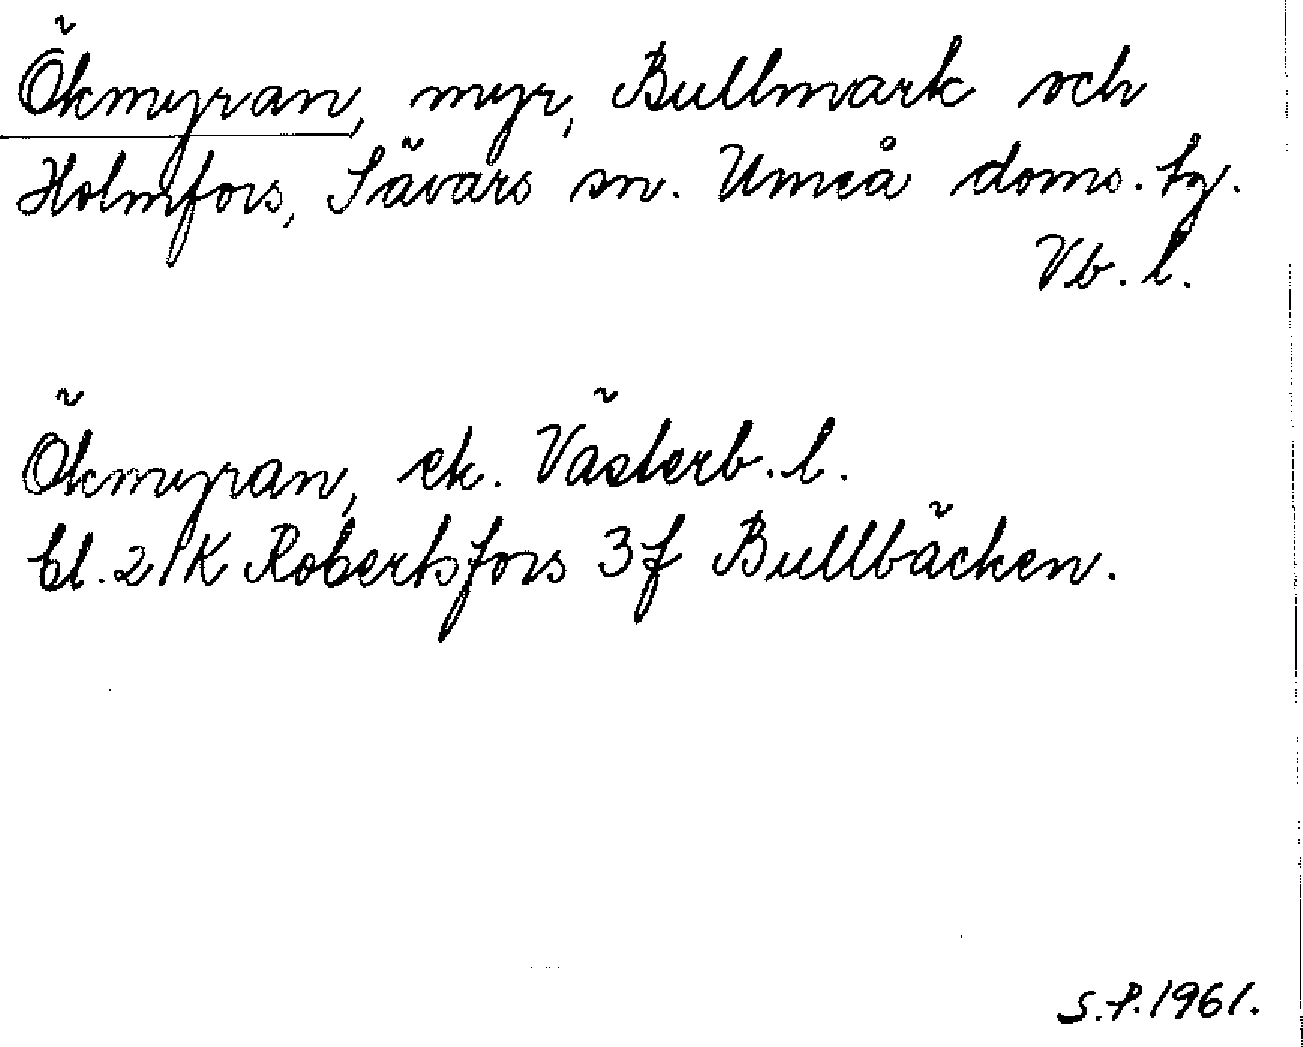 Ökmyran, myr, Bullmark och
Holmfors, Sävars sn. Umeå doms. tg.
Vb. l.
Ökmyran, ek. Västerb. l.
bl. 21K Robertsfors 3f Bullbäcken.
S.P. 1961.